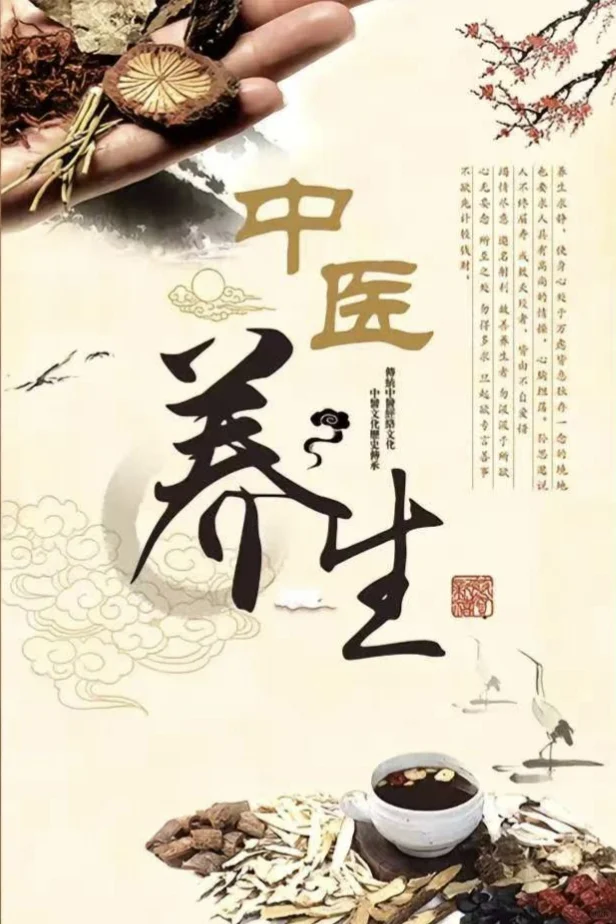 中医
养生
傳統中醫經絡文化
中醫文化歷史傳承
养生求静，使身心处于万虑皆息独存一念的境地
也要求人具有高尚的情操，心胸坦荡，孙思邈说
人不终眉寿 或致夭殁者，皆由不自爱惜
竭情尽意 邀名射利 故善养生者 勿汲汲于所欲
心无妄念 所至之处 勿得多求 旦起欲专言善事
不欲先计较钱财。